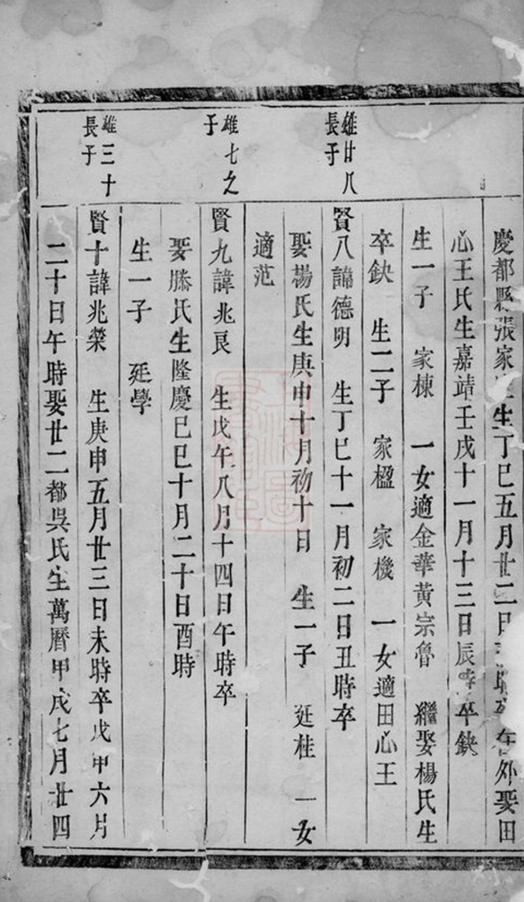 慶都縣張家 生丁巳五月廿二日 外娶田
心王氏生嘉靖壬戌十一月十三日辰時卒缺
生一子　家棟　一女適金華黃宗魯　繼娶楊氏生
卒缺　生二子　家楹　家機　一女適田心王
雄廿八
長子
賢八諱德明　生丁巳十一月初二日丑時卒
娶楊氏生庚申十月初十日　生一子　廷桂　一女
適范
雄七之
子
賢九諱兆良　生戊午八月十四日午時卒
娶滕氏生隆慶己巳十月二十日酉時
生一子　廷學
雄三十
長子
賢十諱兆榮　生庚申五月廿三日未時卒戊申六月
二十日午時娶廿二都吳氏生萬曆甲戌七月廿四